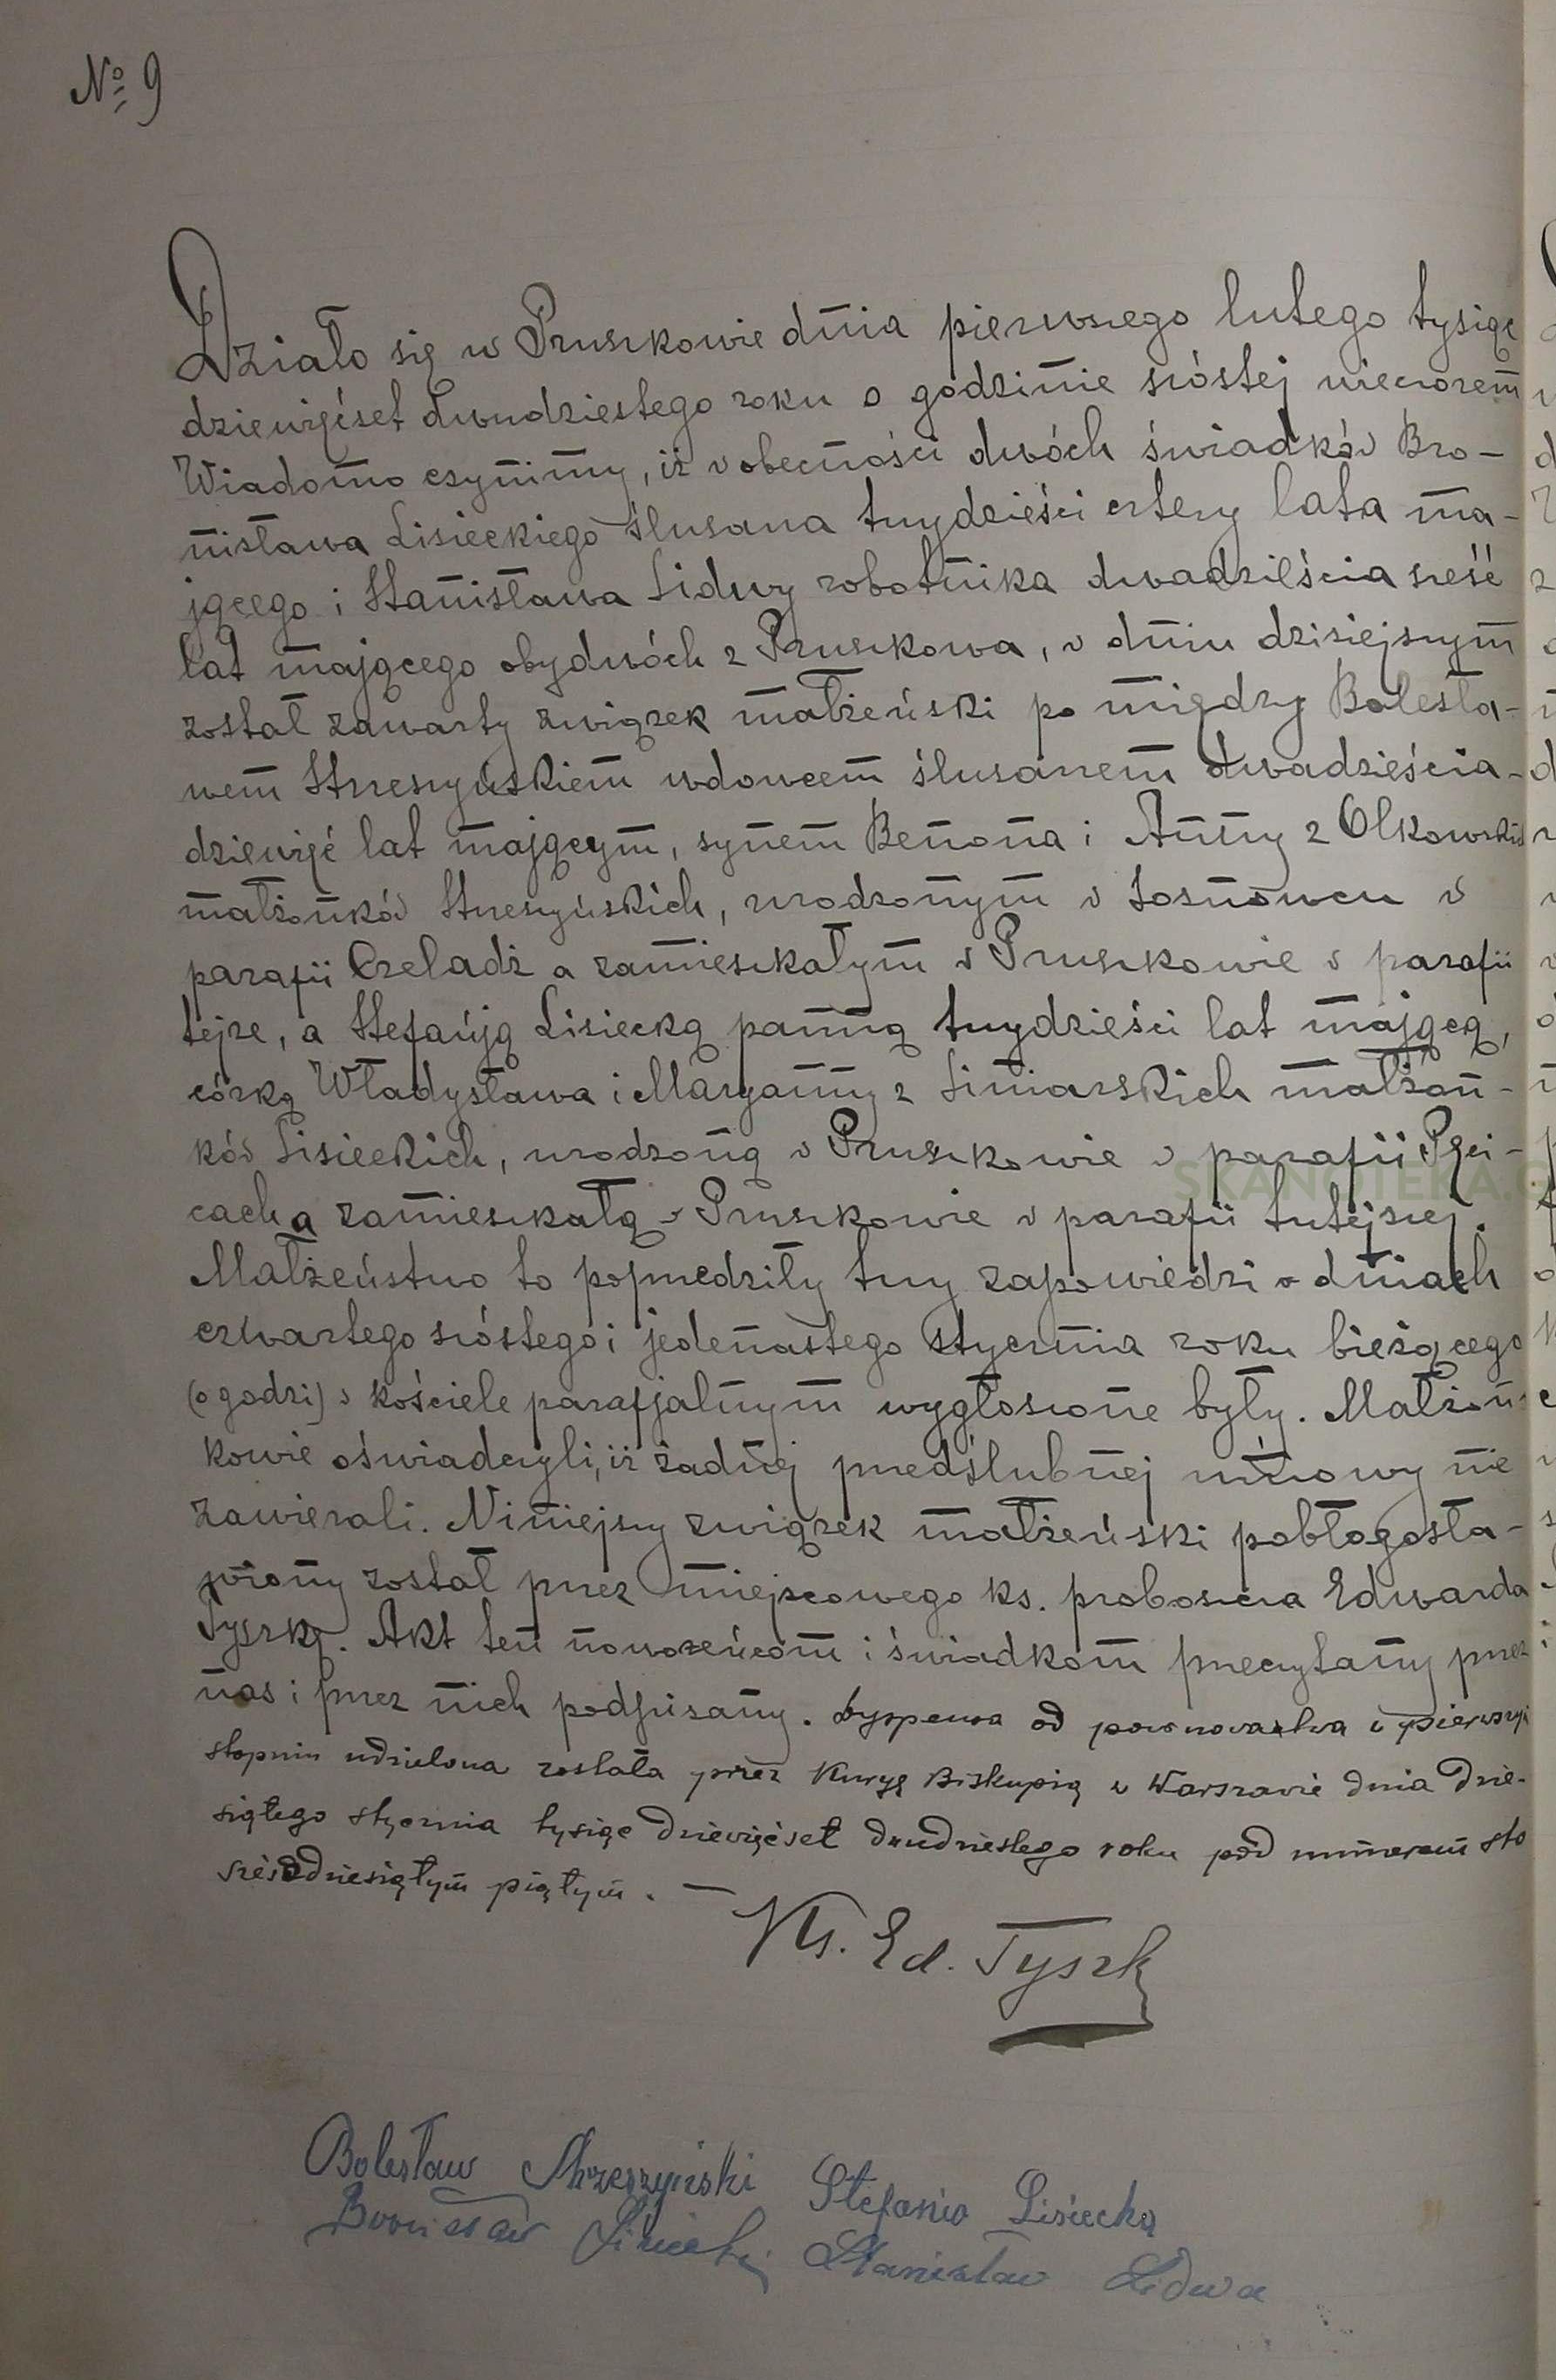 № 9
Działo się w Pruszkowie dnia pierwszego lutego tysiąc
dziewięćset dwudziestego roku o godzinie szóstej wieczorem
Wiadomo czynimy, iż w obecności dwóch świadków Bro-
nisława Lisieckiego ślusarza trzydzieści cztery lata ma-
jącego i Stanisława Lidwy robotnika dwadzieścia sześć
lat mającego obydwóch z Pruszkowa, w dniu dzisiejszym
został zawarty związek małżeński po między Bolesła-
wem Strzeszyńskiem wdowcem ślusarzem dwadzieścia-
dziewięć lat mającym, synem Benona i Anny z Olkowskich
małżonków Strzeszyńskich, urodzonym w Sosnowcu w
parafii Czeladź a zamieszkałym w Pruszkowie w parafii
tejże, a Stefanją Lisiecką panną trzydzieści lat mającą,
córką Władysława i Maryanny z Siniarskich małżon-
ków Lisieckich, urodzoną w Pruszkowie w parafii Pęci-
cach a zamieszkałą w Pruszkowie w parafii tutejszej.
Małżeństwo to poprzedziły trzy zapowiedzi w dniach
czwartego szóstego i jedenastego stycznia roku bieżącego
(o godzi) w kościele parafjalnym wygłoszone były. Małżon-
kowie oświadczyli, iż żadnej przedślubnej umowy nie
zawierali. Niniejszy związek małżeński pobłogosła-
wiony został przez miejscowego ks. proboszcza Edwarda
Tyszkę. Akt ten nowożeńcom i świadkom przeczytany przez
nas i przez nich podpisany. Dyspensa od powinowactwa w pierwszym
stopniu udzielona została przez Kuryę Biskupią w Warszawie dnia dzie-
siątego stycznia tysiąc dziewięćset dwudziestego roku pod numerem sto
sześćdziesiątym piątym. —
Ks. Ed. Tyszk
Bolesław Strzeszyński Stefania Lisiecką
Bronisław Lisiecki Stanisław Lidwa
SKANOTEKA.G